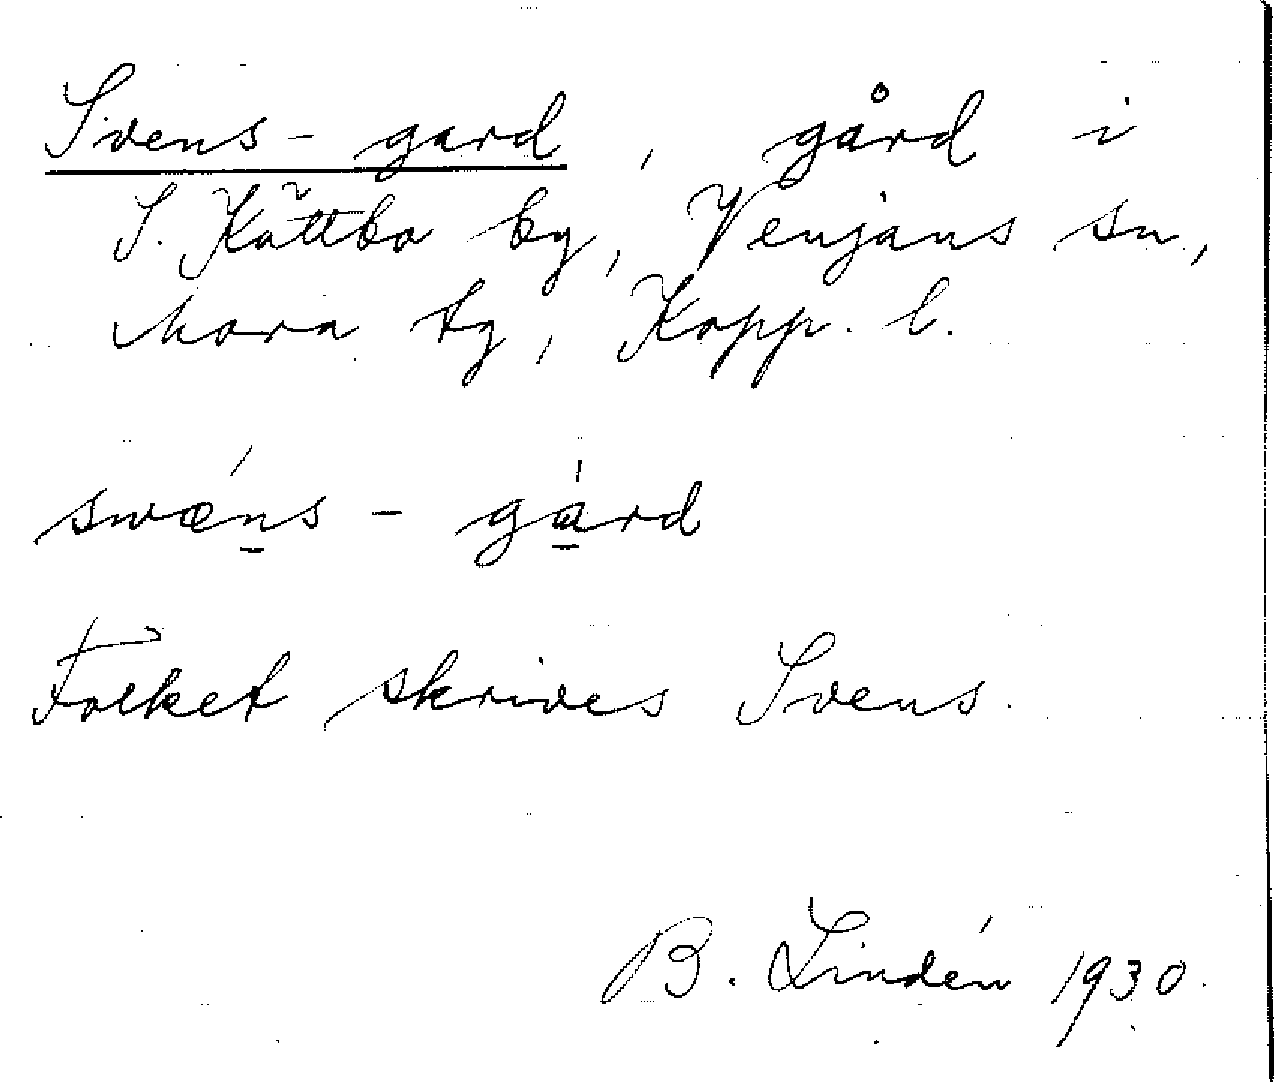 Svens-gard, gård i
S. Kättbo by, Venjans sn,
Mora tg, Kopp. l.
swǽn̠s-gá̠rd
Folket skrives Svens.
B. Lindén 1930.